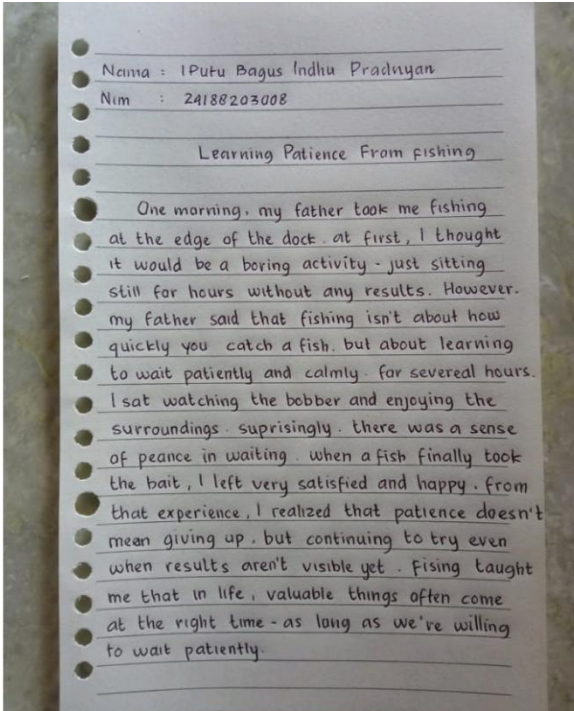 Nama : I Putu Bagus Indhu Pradnyan
Nim : 24188203008
Learning Patience From Fishing
One morning, my father took me fishing
at the edge of the dock. at first, I thought
it would be a boring activity - just sitting
still for hours without any results. However.
my father said that fishing isn't about how
quickly you catch a fish. but about learning
to wait patiently and calmly. for severeal hours.
I sat watching the bobber and enjoying the
surroundings. suprisingly. there was a sense
of peance in waiting. when a fish finally took
the bait, I left very satisfied and happy. from
that experience, I realized that patience doesn't
mean giving up. but continuing to try even
when results aren't visible yet. Fising taught
me that in life, valuable things often come
at the right time - as long as we're willing
to wait patiently.